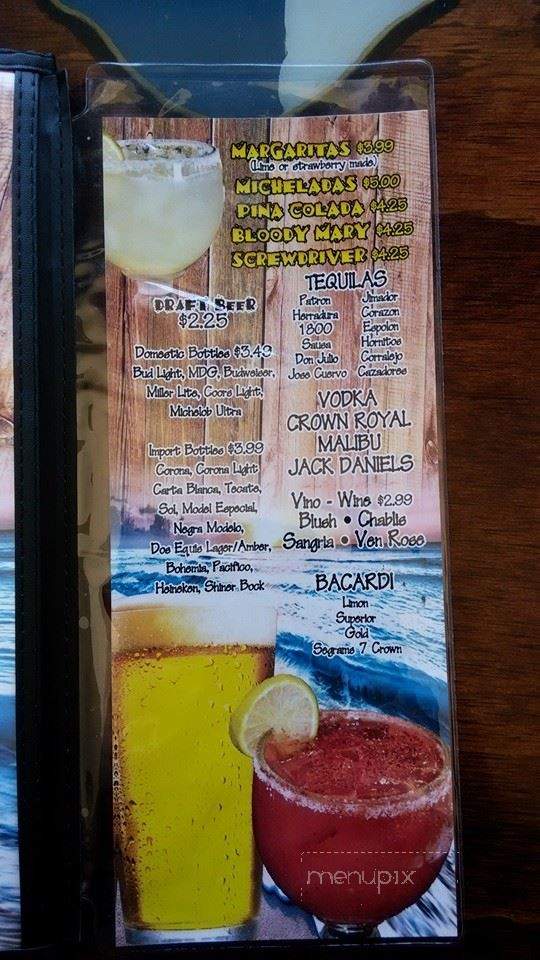 MARGARITAS $3.99
(Lime or strawberry made)
MICHELADAS $5.00
PINA COLADA $4.25
BLOODY MARY $4.25
SCREWDRIVER $4.25
DRAFT BEER
$2.25
Domestic Bottles $3.49
Bud Light, MDG, Budweiser,
Miller Lite, Coors Light,
Michelob Ultra
Import Bottles $3.99
Corona, Corona Light
Carta Blanca, Tecate,
Sol, Model Especial,
Negra Modelo,
Dos Equis Lager/Amber,
Bohemia, Pacifico,
Heineken, Shiner Bock
TEQUILAS
Patron
Herradura
1800
Sausa
Don Julio
Jose Cuervo
Jimador
Corazon
Espolon
Hornitos
Corralejo
Cazadores
VODKA
CROWN ROYAL
MALIBU
JACK DANIELS
Vino - Wine $2.99
Blush • Chablis
Sangria • Ven Rose
BACARDI
Limon
Superior
Gold
Segrams 7 Crown
menupix